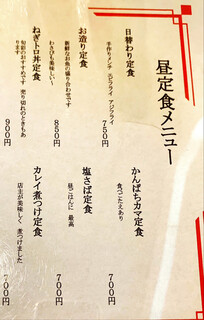 昼定食メニュー
日替わり定食
手作りメンチ エビフライ アジフライ
750円
お造り定食
新鮮なお魚の盛り合わせです
わさびも美味しい〜
850円
ねぎトロ丼定食
旬彩のおすすめです 売り切れのときもあります
900円
かんぱちカマ定食
食べごたえあり
700円
塩さば定食
昼ごはんに 最高
700円
カレイ煮つけ定食
店主が美味しく 煮つけました
700円